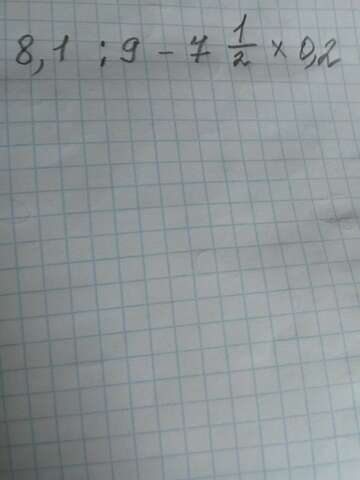 8,1 : 9 - 7 1/2 × 0,2